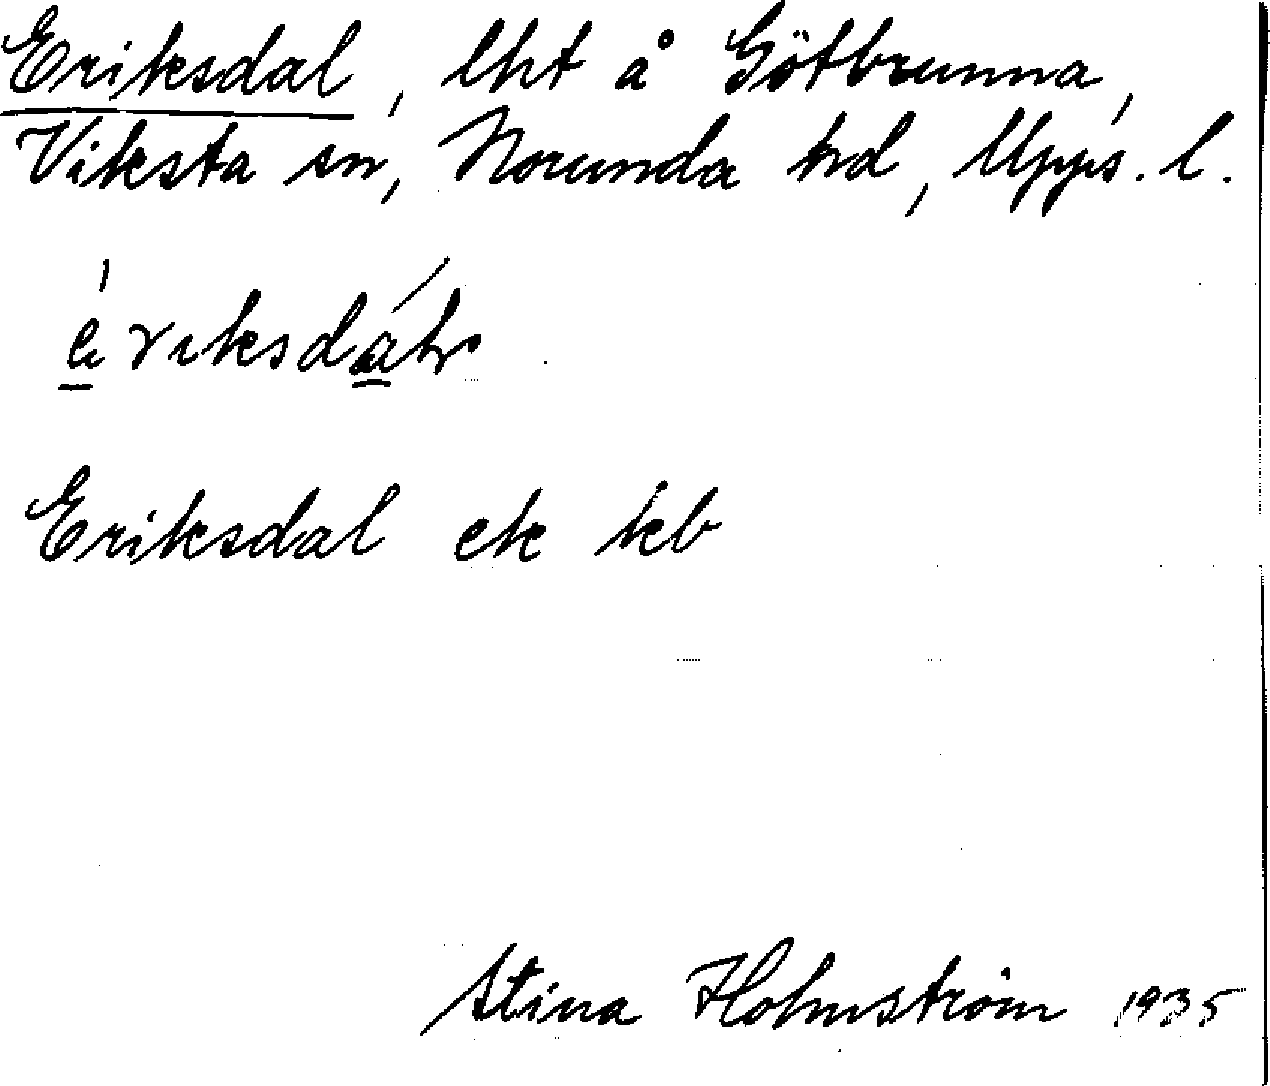 Eriksdal, lht å Götbrunna,
Viksta sn, Norunda hd, Upps. l.
Eriksdal ek kb
Stina Holmström 1935